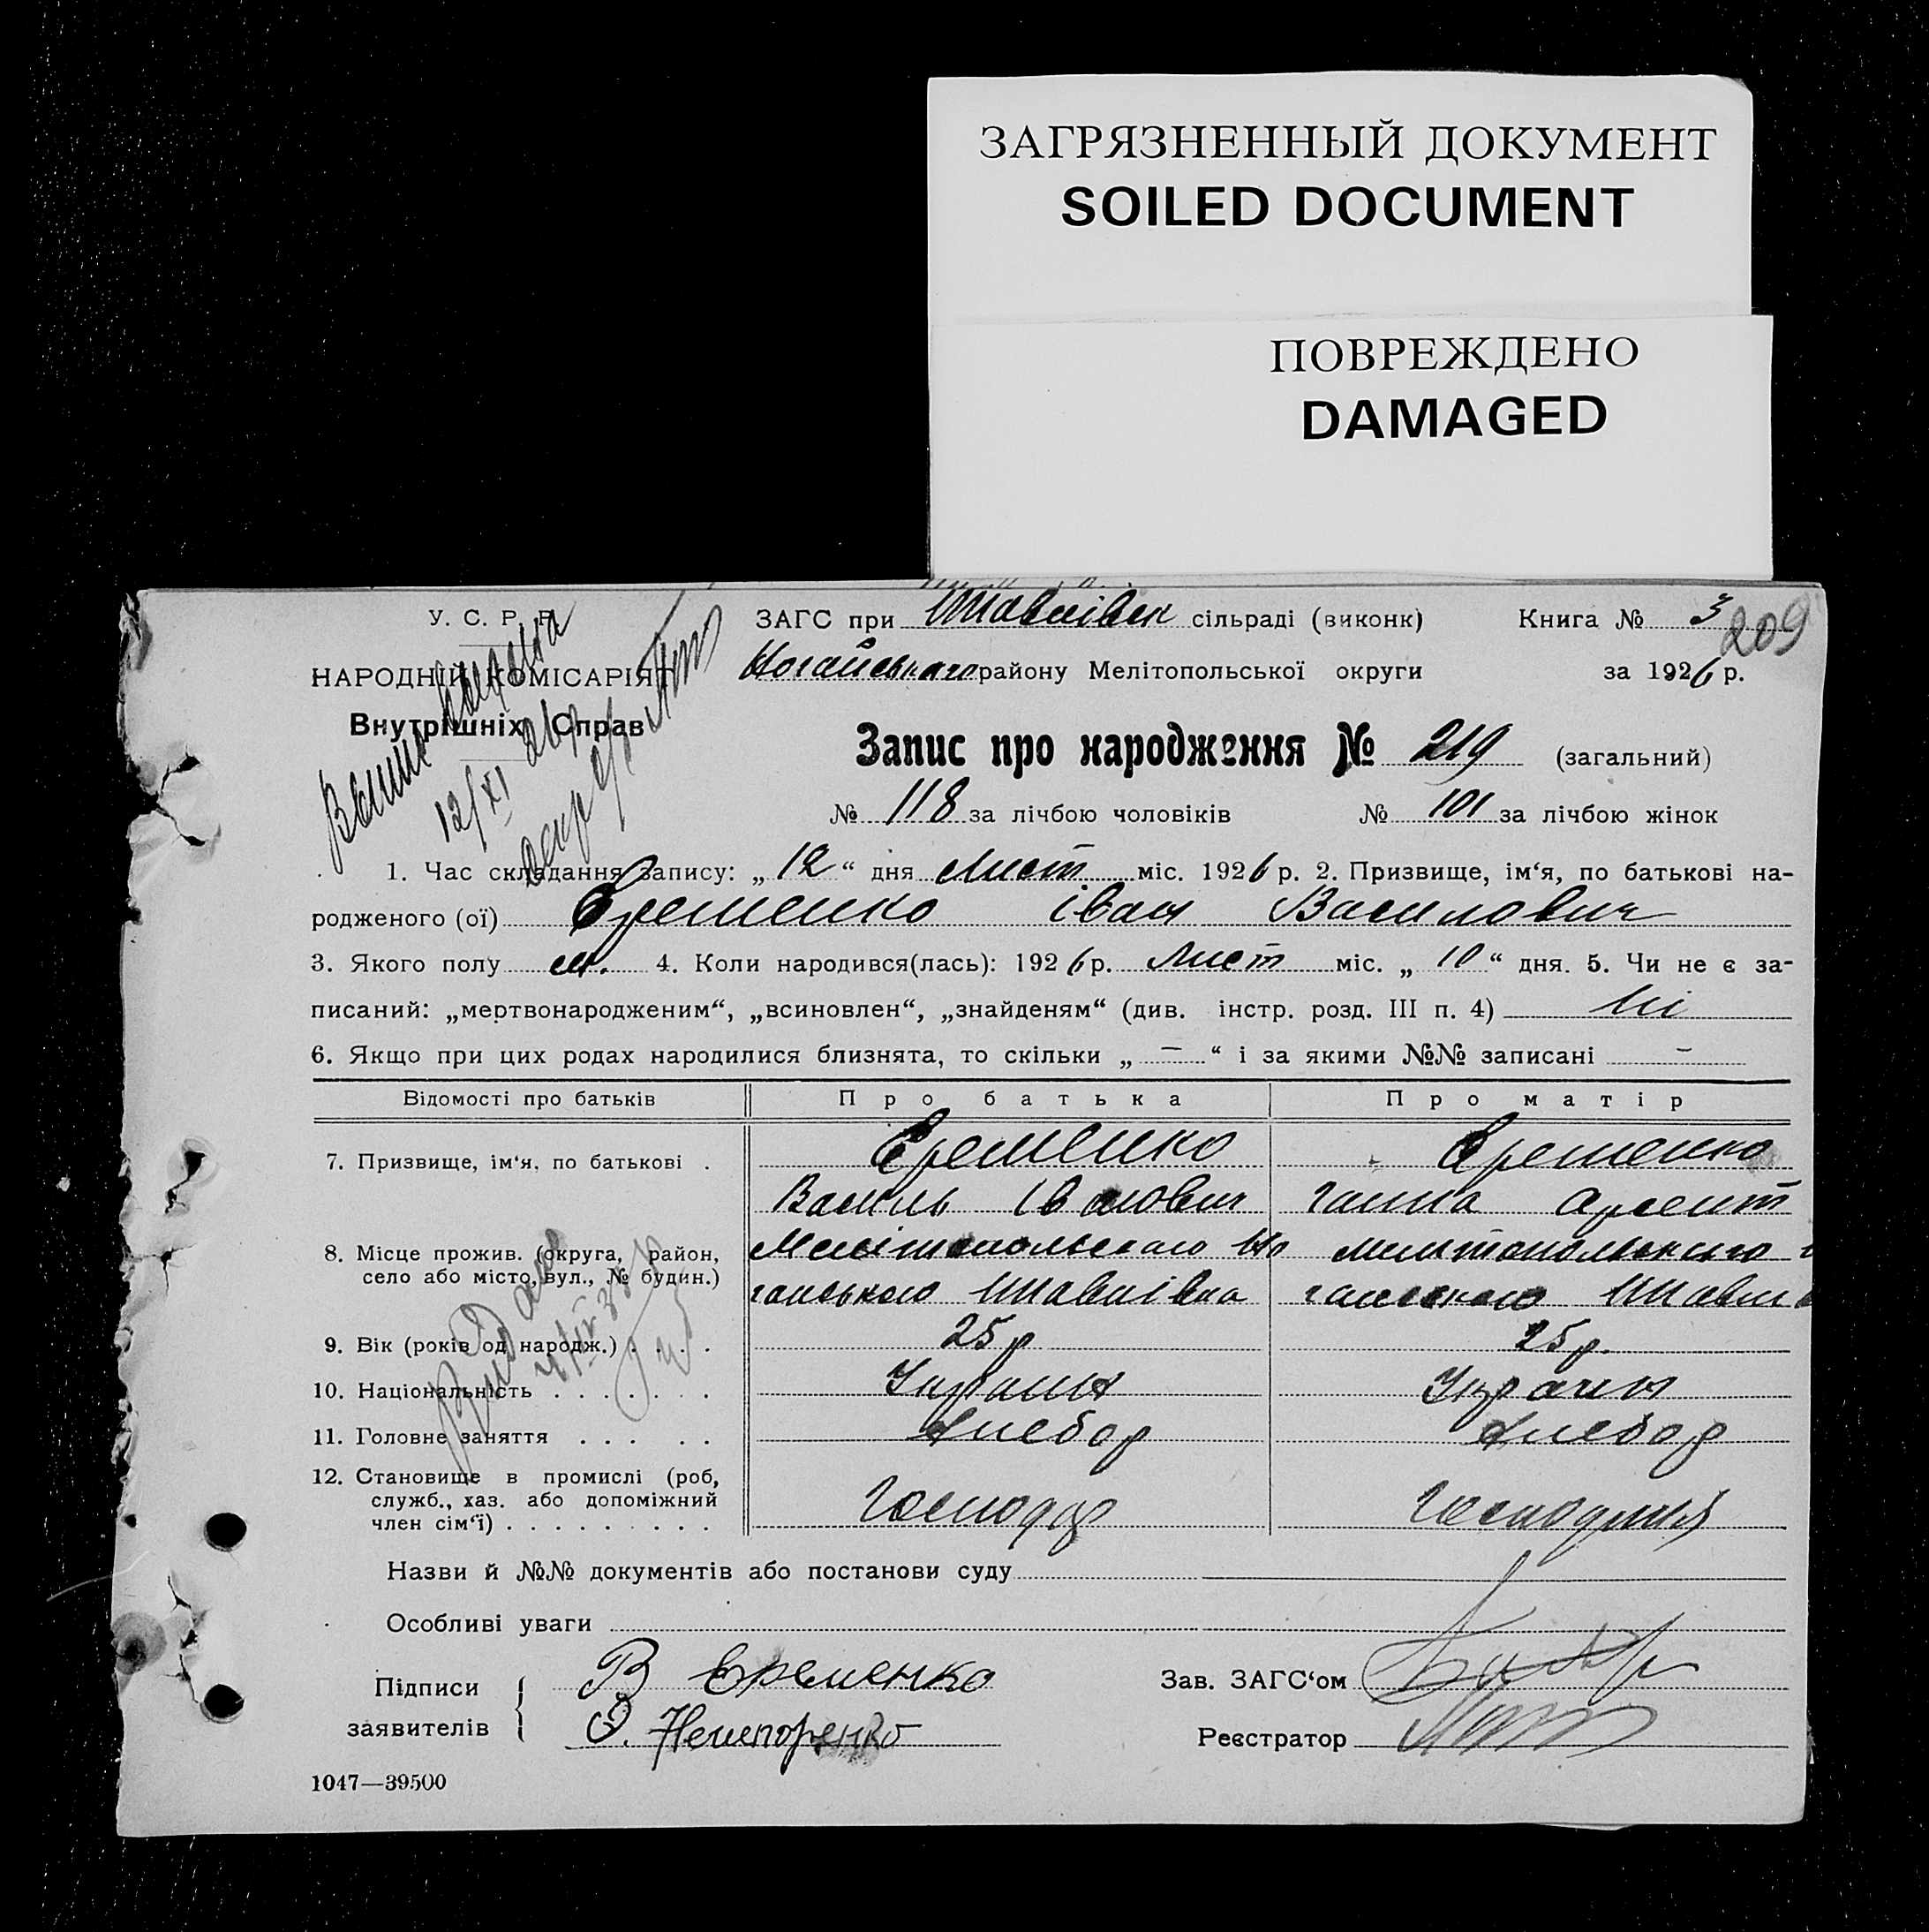 ЗАГРЯЗНЕННЫЙ ДОКУМЕНТ
SOILED DOCUMENT
ПОВРЕЖДЕНО
DAMAGED
У. С. Р. Р.
НАРОДНІЙ КОМІСАРІЯТ
Внутрішніх Справ
ЗАГС при сільраді (виконк) Книга № 3
209
Ногайського району Мелітопольської округи за 1926 р.
Запис про народження № 219 (загальний)
№ 118 за лічбою чоловіків № 101 за лічбою жінок
12/XI
1. Час складання запису: „ 12 “ дня Лист міс. 1926 р. 2. Призвище, ім‘я, по батькові на-
родженого (ої) Єременко Іван Василович
3. Якого полу м. 4. Коли народився(лась): 1926 р. Лист міс. „ 10 “ дня. 5. Чи не є за-
писаний: „мертвонародженим“, „всиновлен“, „знайденям“ (див. інстр. розд. III п. 4) Ні
6. Якщо при цих родах народилися близнята, то скільки „ — “ і за якими №№ записані —
Відомості про батьків Про батька Про матір
7. Призвище, ім‘я, по батькові . Єременко Єременко
Василь Іванович Ганна Арсент
8. Місце прожив. (округа, район, Мелітопольского Но Мелітопольского
село або місто, вул., № будин.) гайського гайского
9. Вік (років од народж.) . . . . 25 р 25 р.
10. Національність . . . . . . . Україн Україн
11. Головне заняття . . . . . Хлебор Хлебор
12. Становище в промислі (роб,
служб., хаз. або допоміжний
член сім‘ї) . . . . . . . . . Господар Господиня
Видано
Назви й №№ документів або постанови суду
Особливі уваги
Підписи В Еременко Зав. ЗАГС‘ом
заявителів Реєстратор
1047—39500